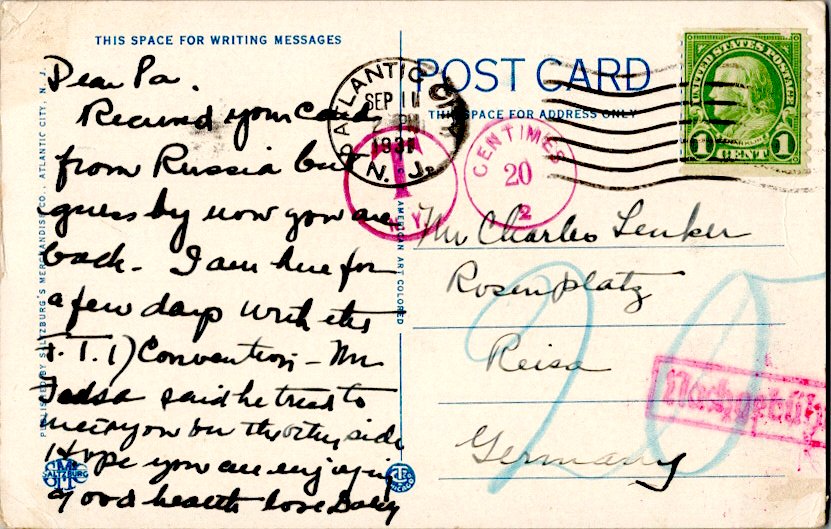 THIS SPACE FOR WRITING MESSAGES
Dear Pa.
Received your card
from Russia but
guess by now you are
back. I am here for
a few days with the
F.T.I) Convention - Mr
said he tried to
meet you on the other side
Hope you are enjoying
good health love
PUBLISHED BY SALTZBURG'S MERCHANDISE CO., ATLANTIC CITY, N. J.
SALTZBURG
AMERICAN ART COLORED
CHICAGO
POST CARD
THIS SPACE FOR ADDRESS ONLY
ATLANTIC CITY
SEP 11
N. J.
T
N.Y.
CENTIMES
20
2
UNITED STATES POSTAGE
FRANKLIN
1 CENT 1
Mr Charles Lenker
Rosenplatz
Reisa
Germany
20
Nachgebühr